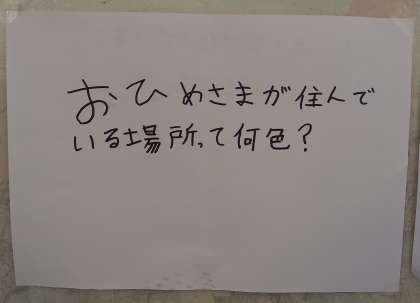 おひめさまが住んで
いる場所って何色？